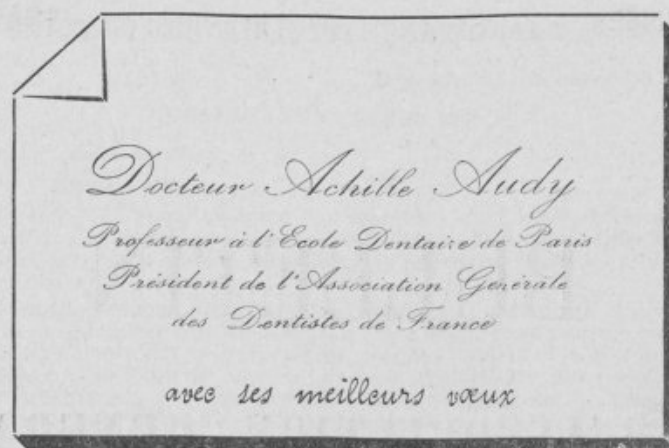 Docteur Achille Audy
Professeur à l'Ecole Dentaire de Paris
Président de l'Association Générale
des Dentistes de France
avec ses meilleurs vœux